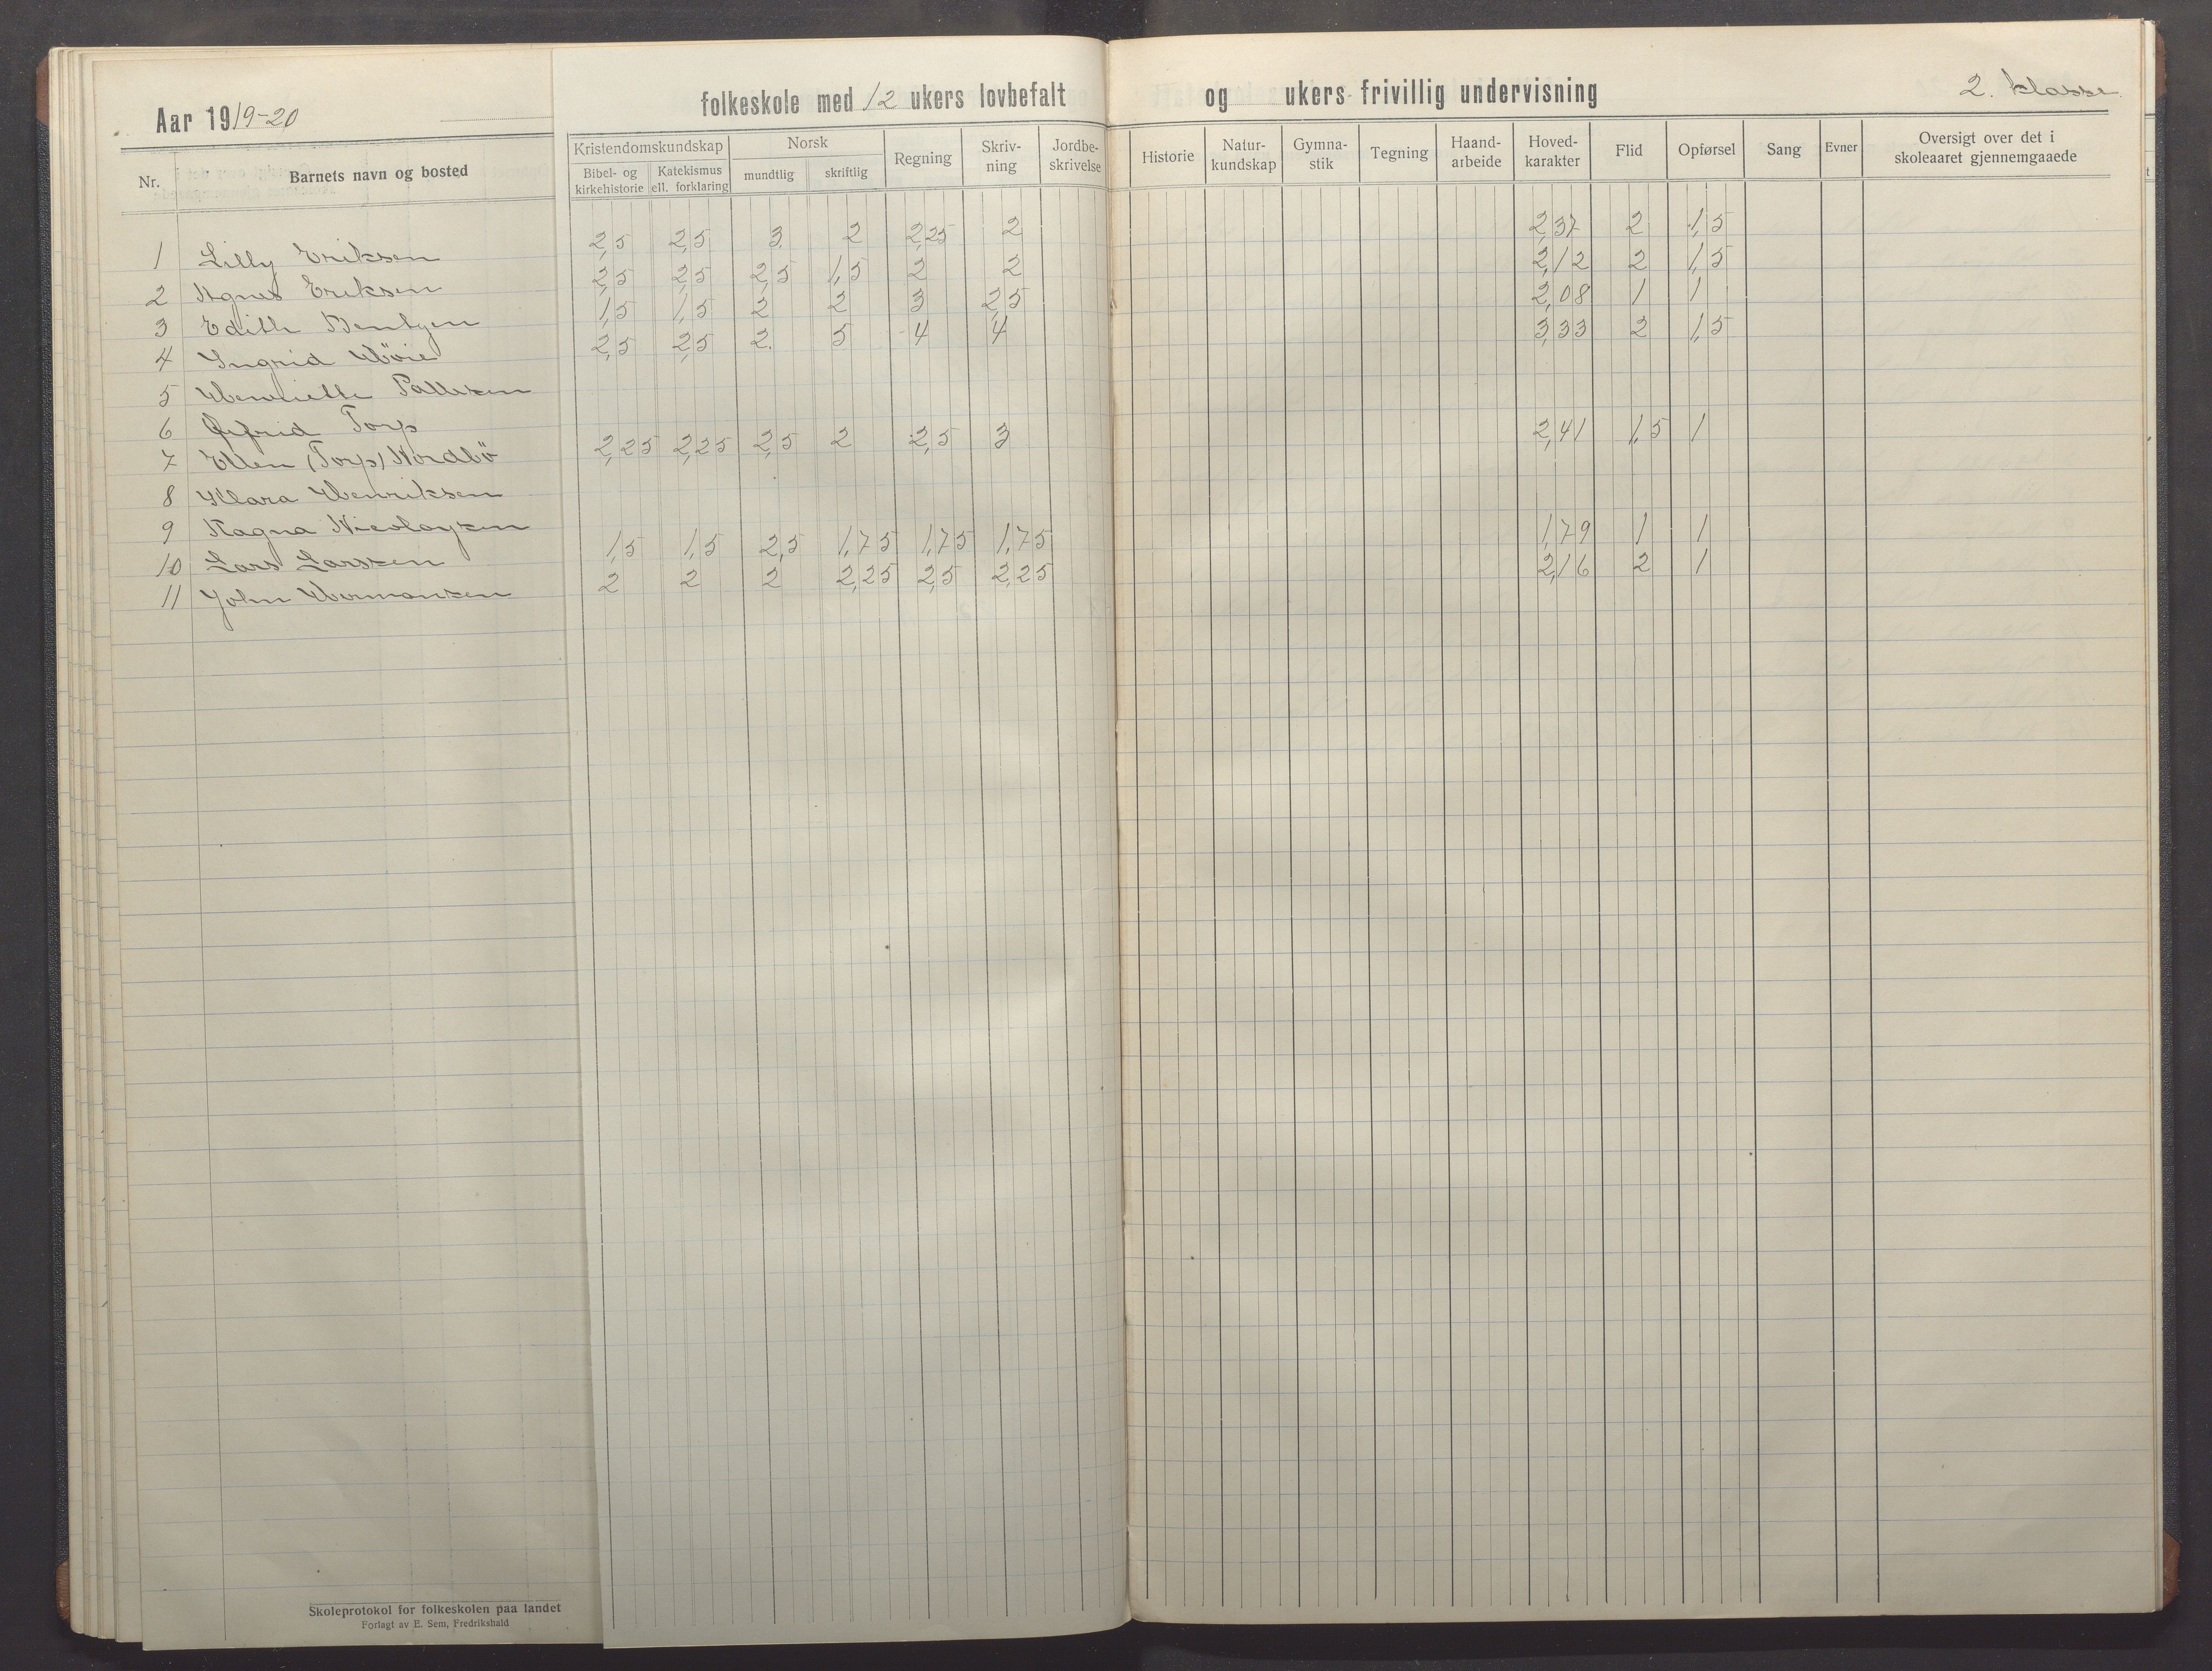 Aar 1919-20
folkeskole med 12 ukers lovbefalt og ukers frivillig undervisning
2. klasse
Nr. Barnets navn og bosted Kristendomskundskap Bibel- og kirkehistorie Katekismus ell. forklaring Norsk mundtlig skriftlig Regning Skriv-ning Jordbe-skrivelse Historie Natur-kundskap Gymna-stik Tegning Haand-arbeide Hoved-karakter Flid Opførsel Sang Evner Oversigt over det i skoleaaret gjennemgaaede
1 Lilly Eriksen 2,5 2,5 3 2 2,25 2 2,37 2 1,5
2 Agnes Eriksen 2,5 2,5 2,5 1,5 2 2 2,12 2 1,5
3 Edith Bentzen 1,5 1,5 2 2 3 2,5 2,08 1 1
4 Ingrid Høie 2,5 2,5 2. 5 4 4 3,33 2 1,5
5 Henriette Pallesen
6 Torp
7 Ellen (Torp) Nordbö 2,25 2,25 2,5 2 2,5 3 2,41 1,5 1
8 Klara Henriksen
9 Ragna Nicolaysen
10 Lars Larssen 1,5 1,5 2,5 1,75 1,75 1,75 1,79 1 1
11 John Hermansen 2 2 2 2,25 2,5 2,25 2,16 2 1
Skoleprotokol for folkeskolen paa landet
Forlagt av E. Sem, Fredrikshald